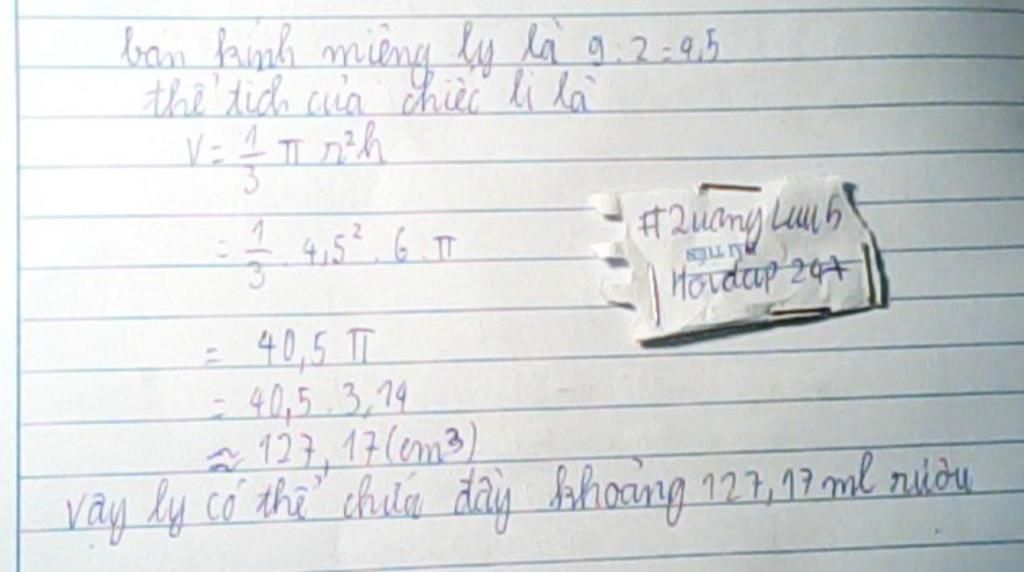 bán kính miệng ly là 9:2=4,5
thể tích của chiếc li là
V = 1/3 π r²h
= 1/3 . 4,5² . 6 . π
= 40,5 π
= 40,5 . 3,14
≈ 127,17 (cm³)
vậy ly có thể chứa đầy khoảng 127,17 ml rượu
#Quang Luu5
Hoidap 247